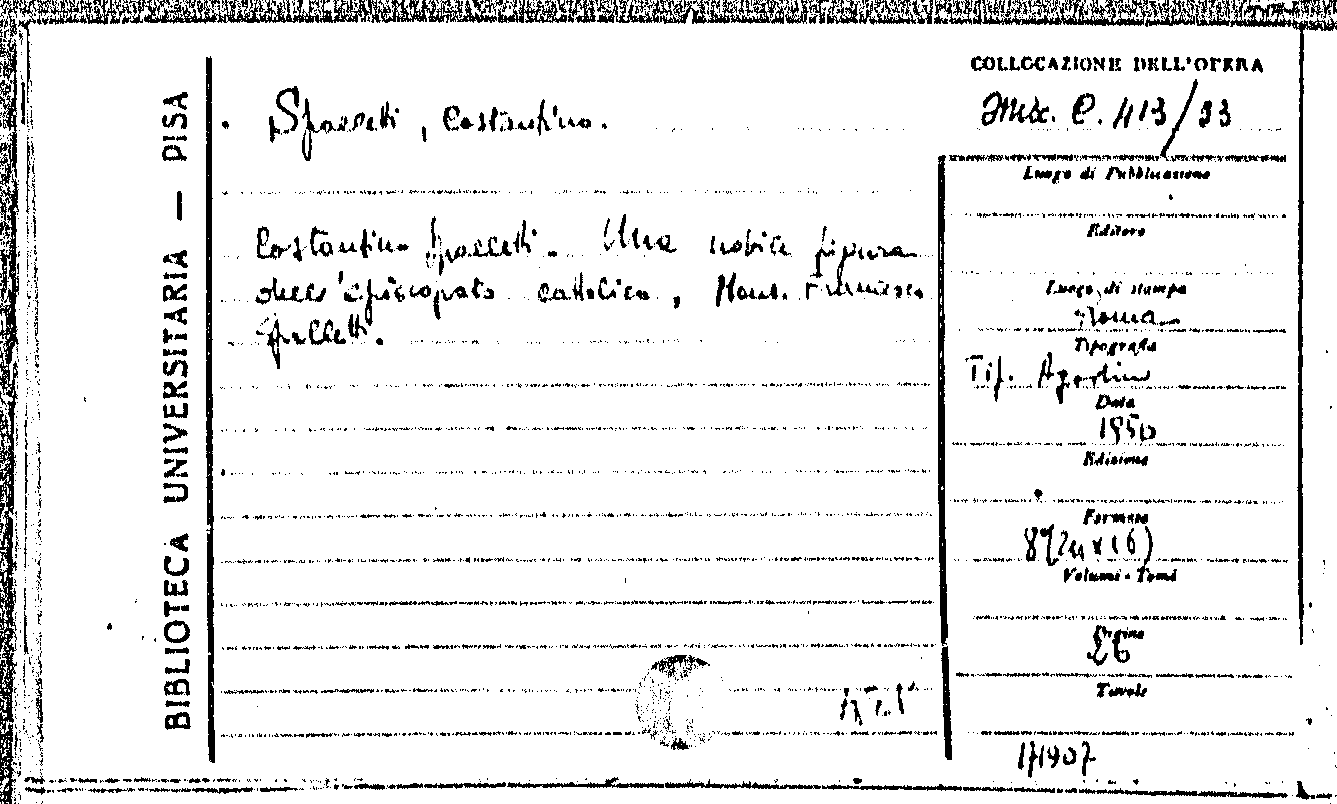 BIBLIOTECA UNIVERSITARIA — PISA
Spalletti, Costantino.
Costantino Spalletti. Una nobile figura
dell'episcopato cattolico, Mons. Francesco
Spalletti.
COLLOCAZIONE DELL'OPERA
Misc. C. 413/33
Luogo di Pubblicazione
Editore
Luogo di stampa
Roma
Tipografia
Tip. Agostin
Data
1950
Edizione
Formato
8°(24x16)
Volumi - Tomi
Pagine
26
Tavole
171907